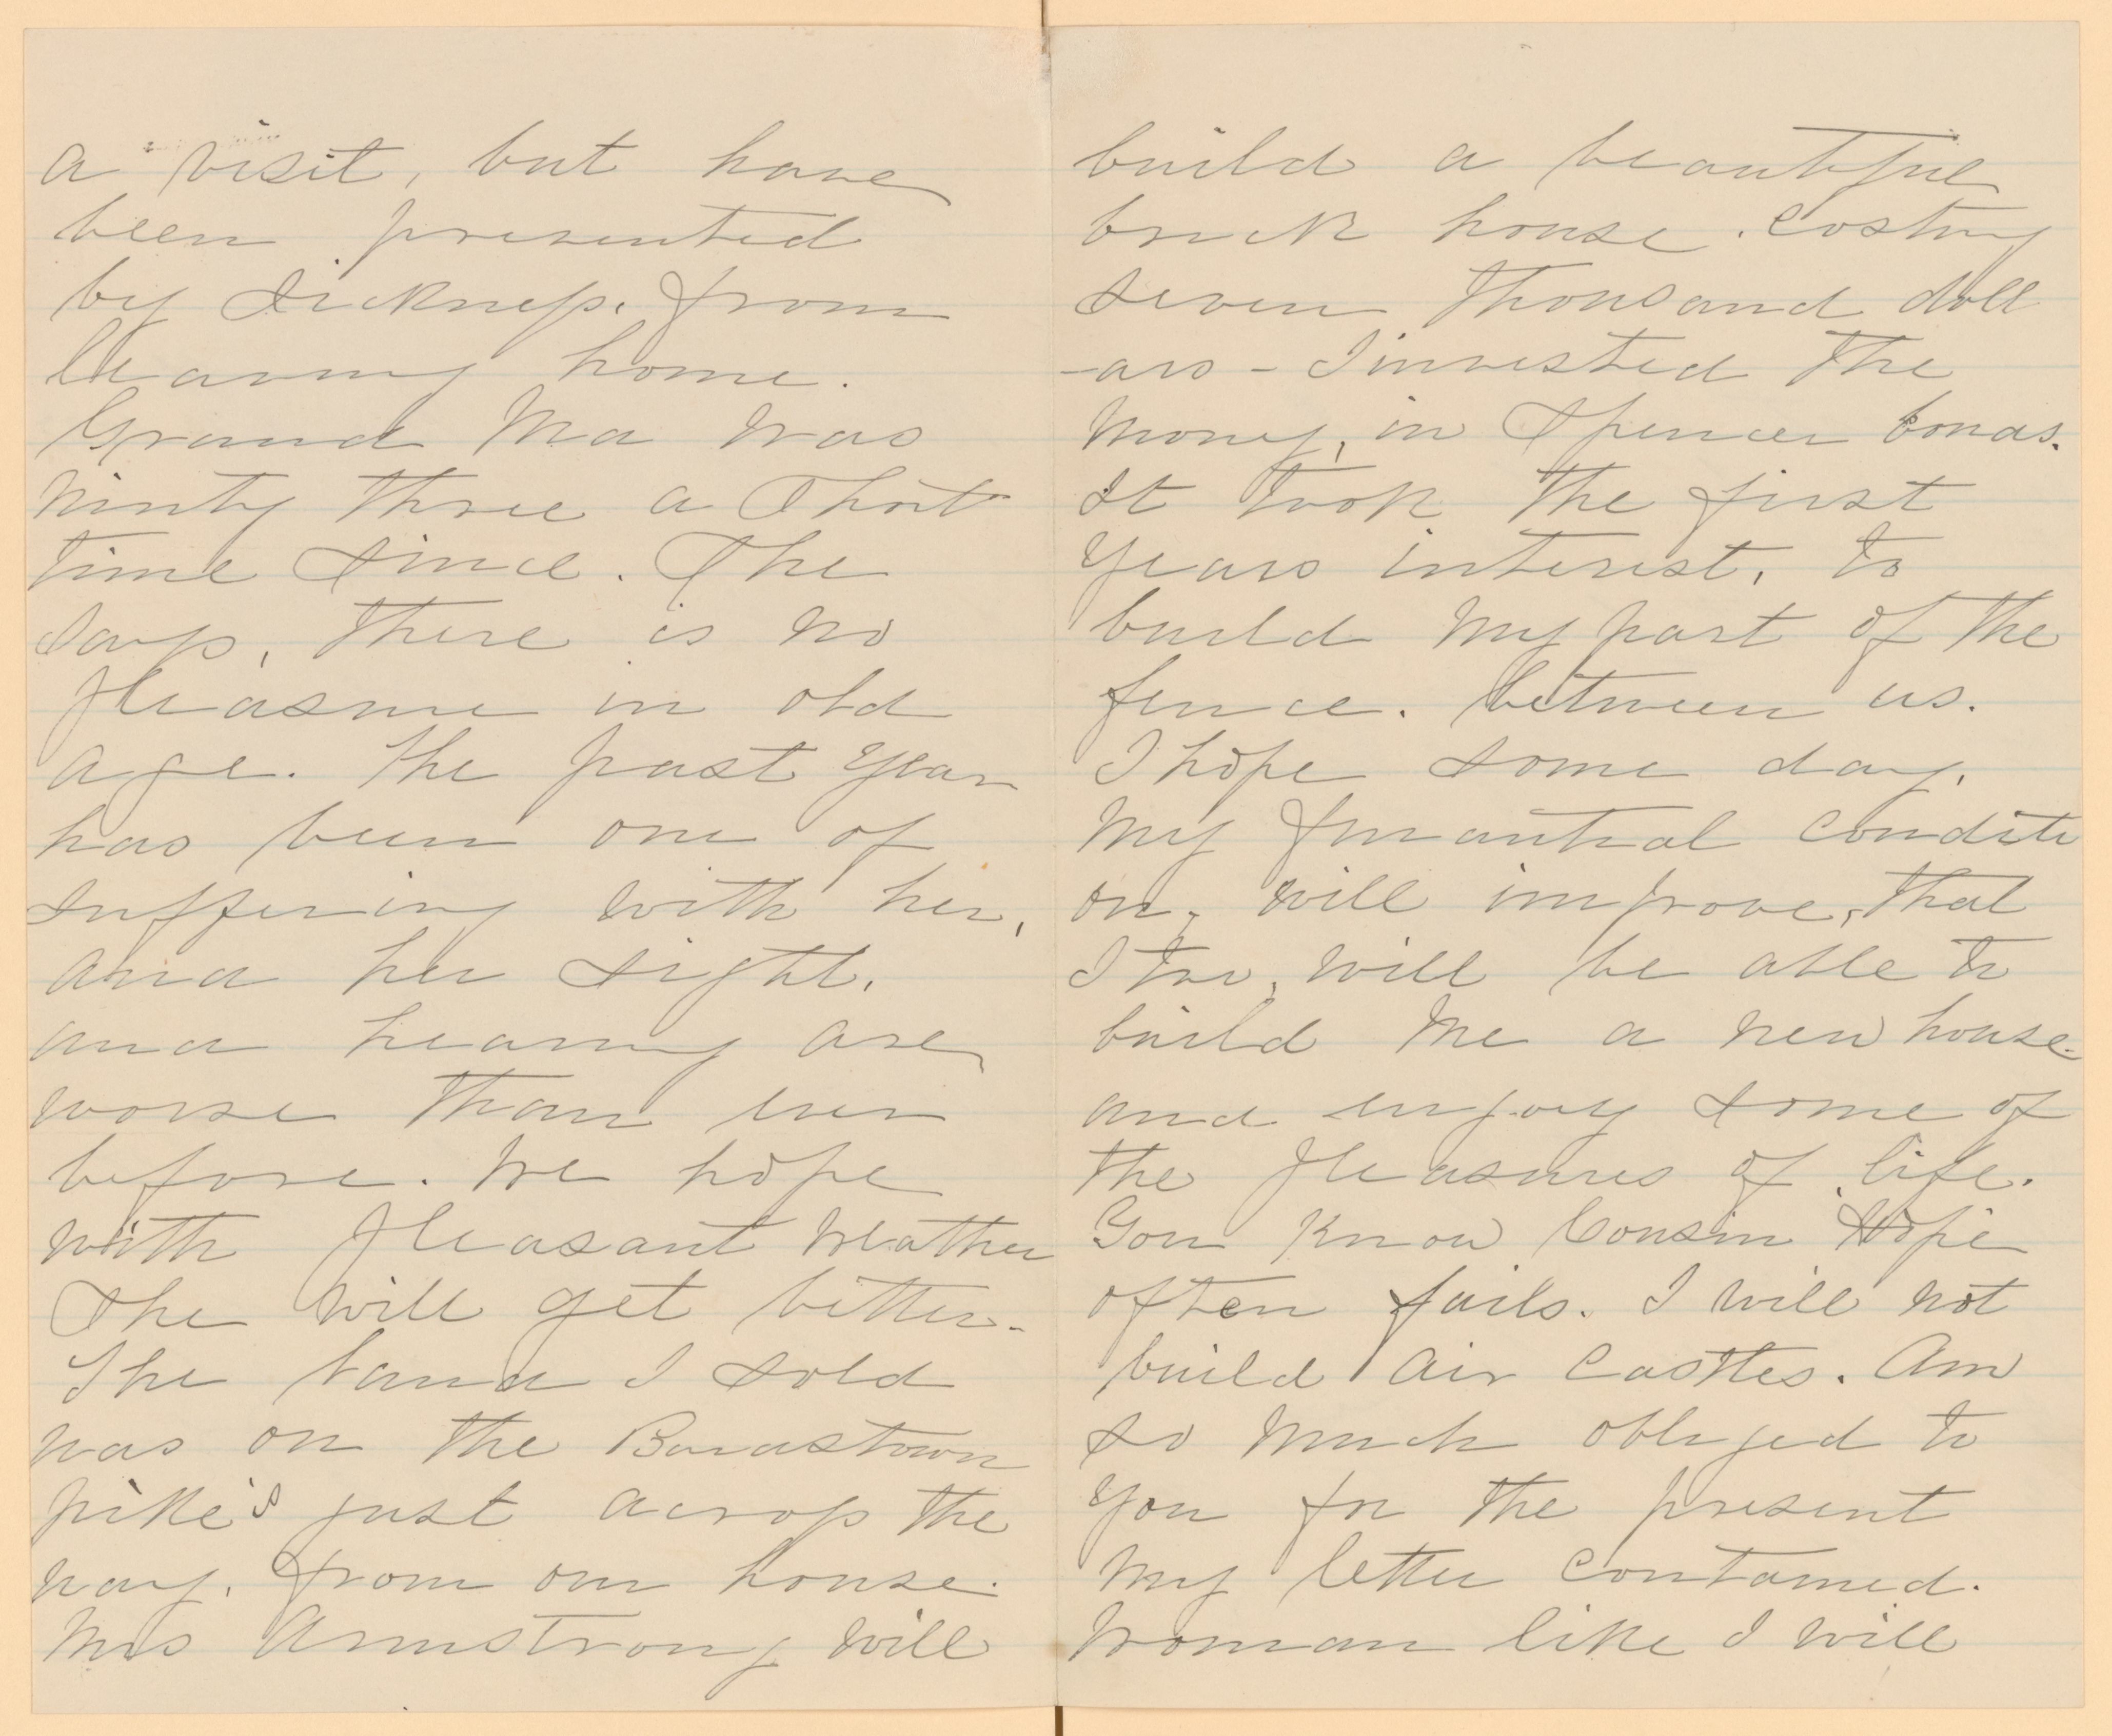 a visit, but have
been presented
by sickness. from
leaving home.
Grand Ma was
ninty three a short
time since. She
says, there is no
pleasure in old
age. The past year
has been one of
suffering with her,
and her sight,
and hearing are
worse than ever
before. We hope
with pleasant weather
she will get better.
The land I sold
was on the Bardstown
pike's just across the
way, from our house.
Mrs Armstrong will
build a beautiful
brick house. Costing
seven thousand doll
-ars - I invested the
money, in Spencer bonds.
It took the first
years interest, to
build my part of the
fence. between us.
I hope some day,
my finantial conditi
on, will improve, that
I too, will be able to
build me a new house.
and enjoy some of
the pleasures of life.
You know Cousin Hope
often fails. I will not
build air castles. Am
so much obliged to
you for the present
my letter contained.
Woman like I will